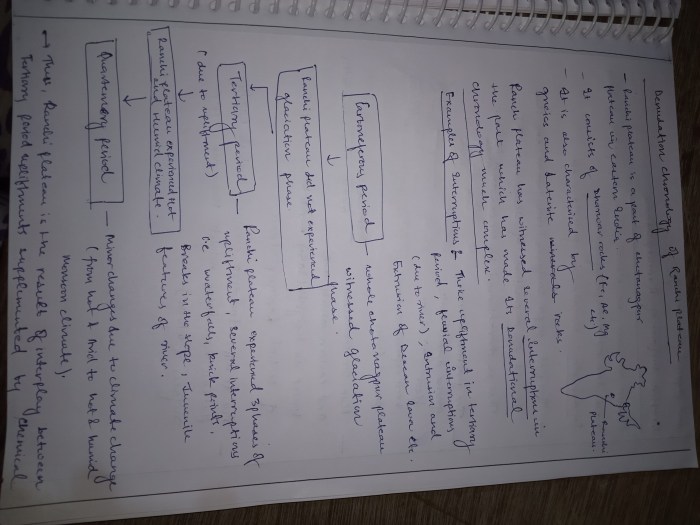 Denudation chronology of Ranchi plateau
- Ranchi plateau is a part of chotanagpur
plateau in eastern India.
- It consists of dharwar rocks (Fe, Al, Mg
- It is also characterised by
gneiss and laterite rocks.
Ranchi
Plateau.
Ranchi plateau has witnessed several interruptions in
the past which has made its Denudational
chronology much complex.
Examples of interruptions : Three upliftment in tertiary
period, fluvial interruptions
(due to river), intrusion and
Extrusion of Deccan lava etc.
Carboniferous period - whole chotanagpur plateau
witnessed glaciation
phase.
Ranchi plateau did not experienced
glaciation phase
Tertiary period - Ranchi plateau experienced 3 phases of
(due to upliftment) upliftment, several interruptions
i.e. waterfalls, knick points,
Breaks in the slope, Juvenile
features of river.
Ranchi plateau experienced hot
and humid climate.
Quaternary period - Minor changes due to climate change
(from hot & arid to hot & humid
monsoon climate).
→ Thus, Ranchi plateau is the result of interplay between
Tertiary period upliftment supplimented by chemical